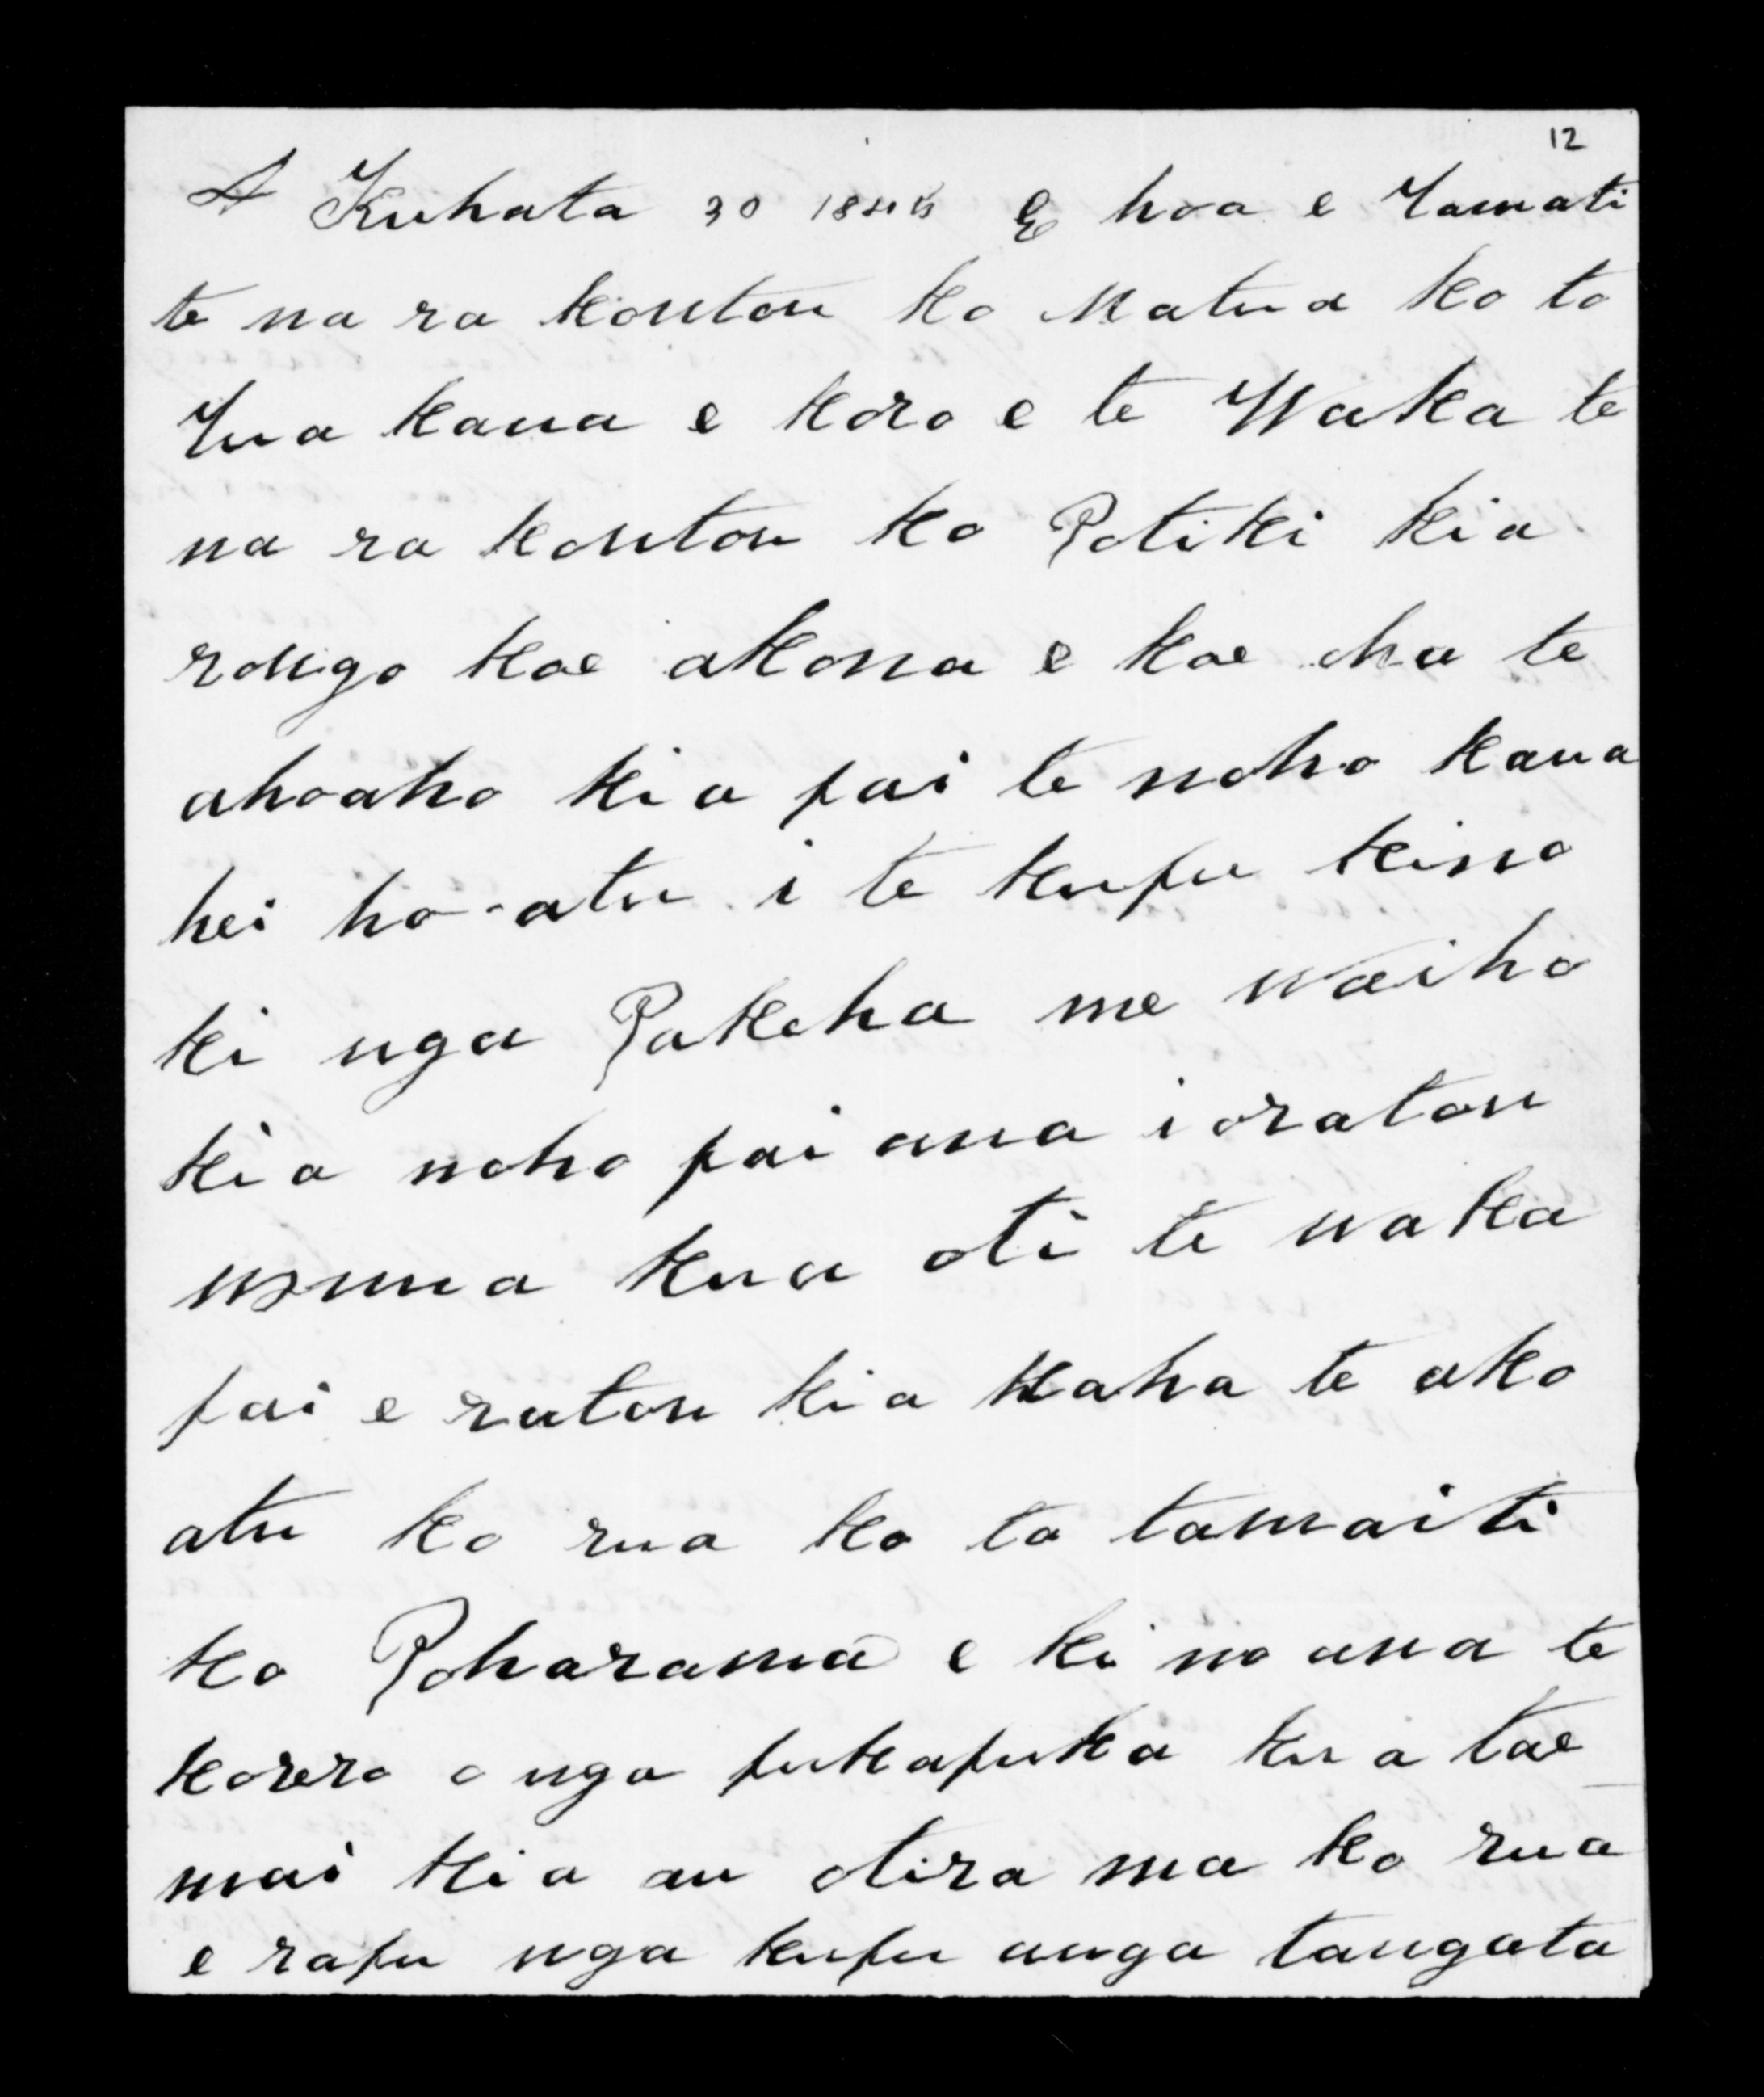 12
A Kuhata 30 184 E hoa e Tamati
te na ra koutou ko Matua ko to
Tua kana e koro e te Waka te
na ra koutou ko Potiki kia
rongo koe akona e koe oha te
ahoaho kia pai te noho kaua
hei ho-atu i te kupu kino
ki nga Pakeha me waiho
kia noho pai ana i oratou
kua oti te waka
pai e ratou kia kaha te ako
atu ko rua ko to tamaiti
ko Poharama e ki no ana te
korero o nga pukapuka ku a tae
mai kia au otira ma ko rua
e rapu nga kupu anga tangata